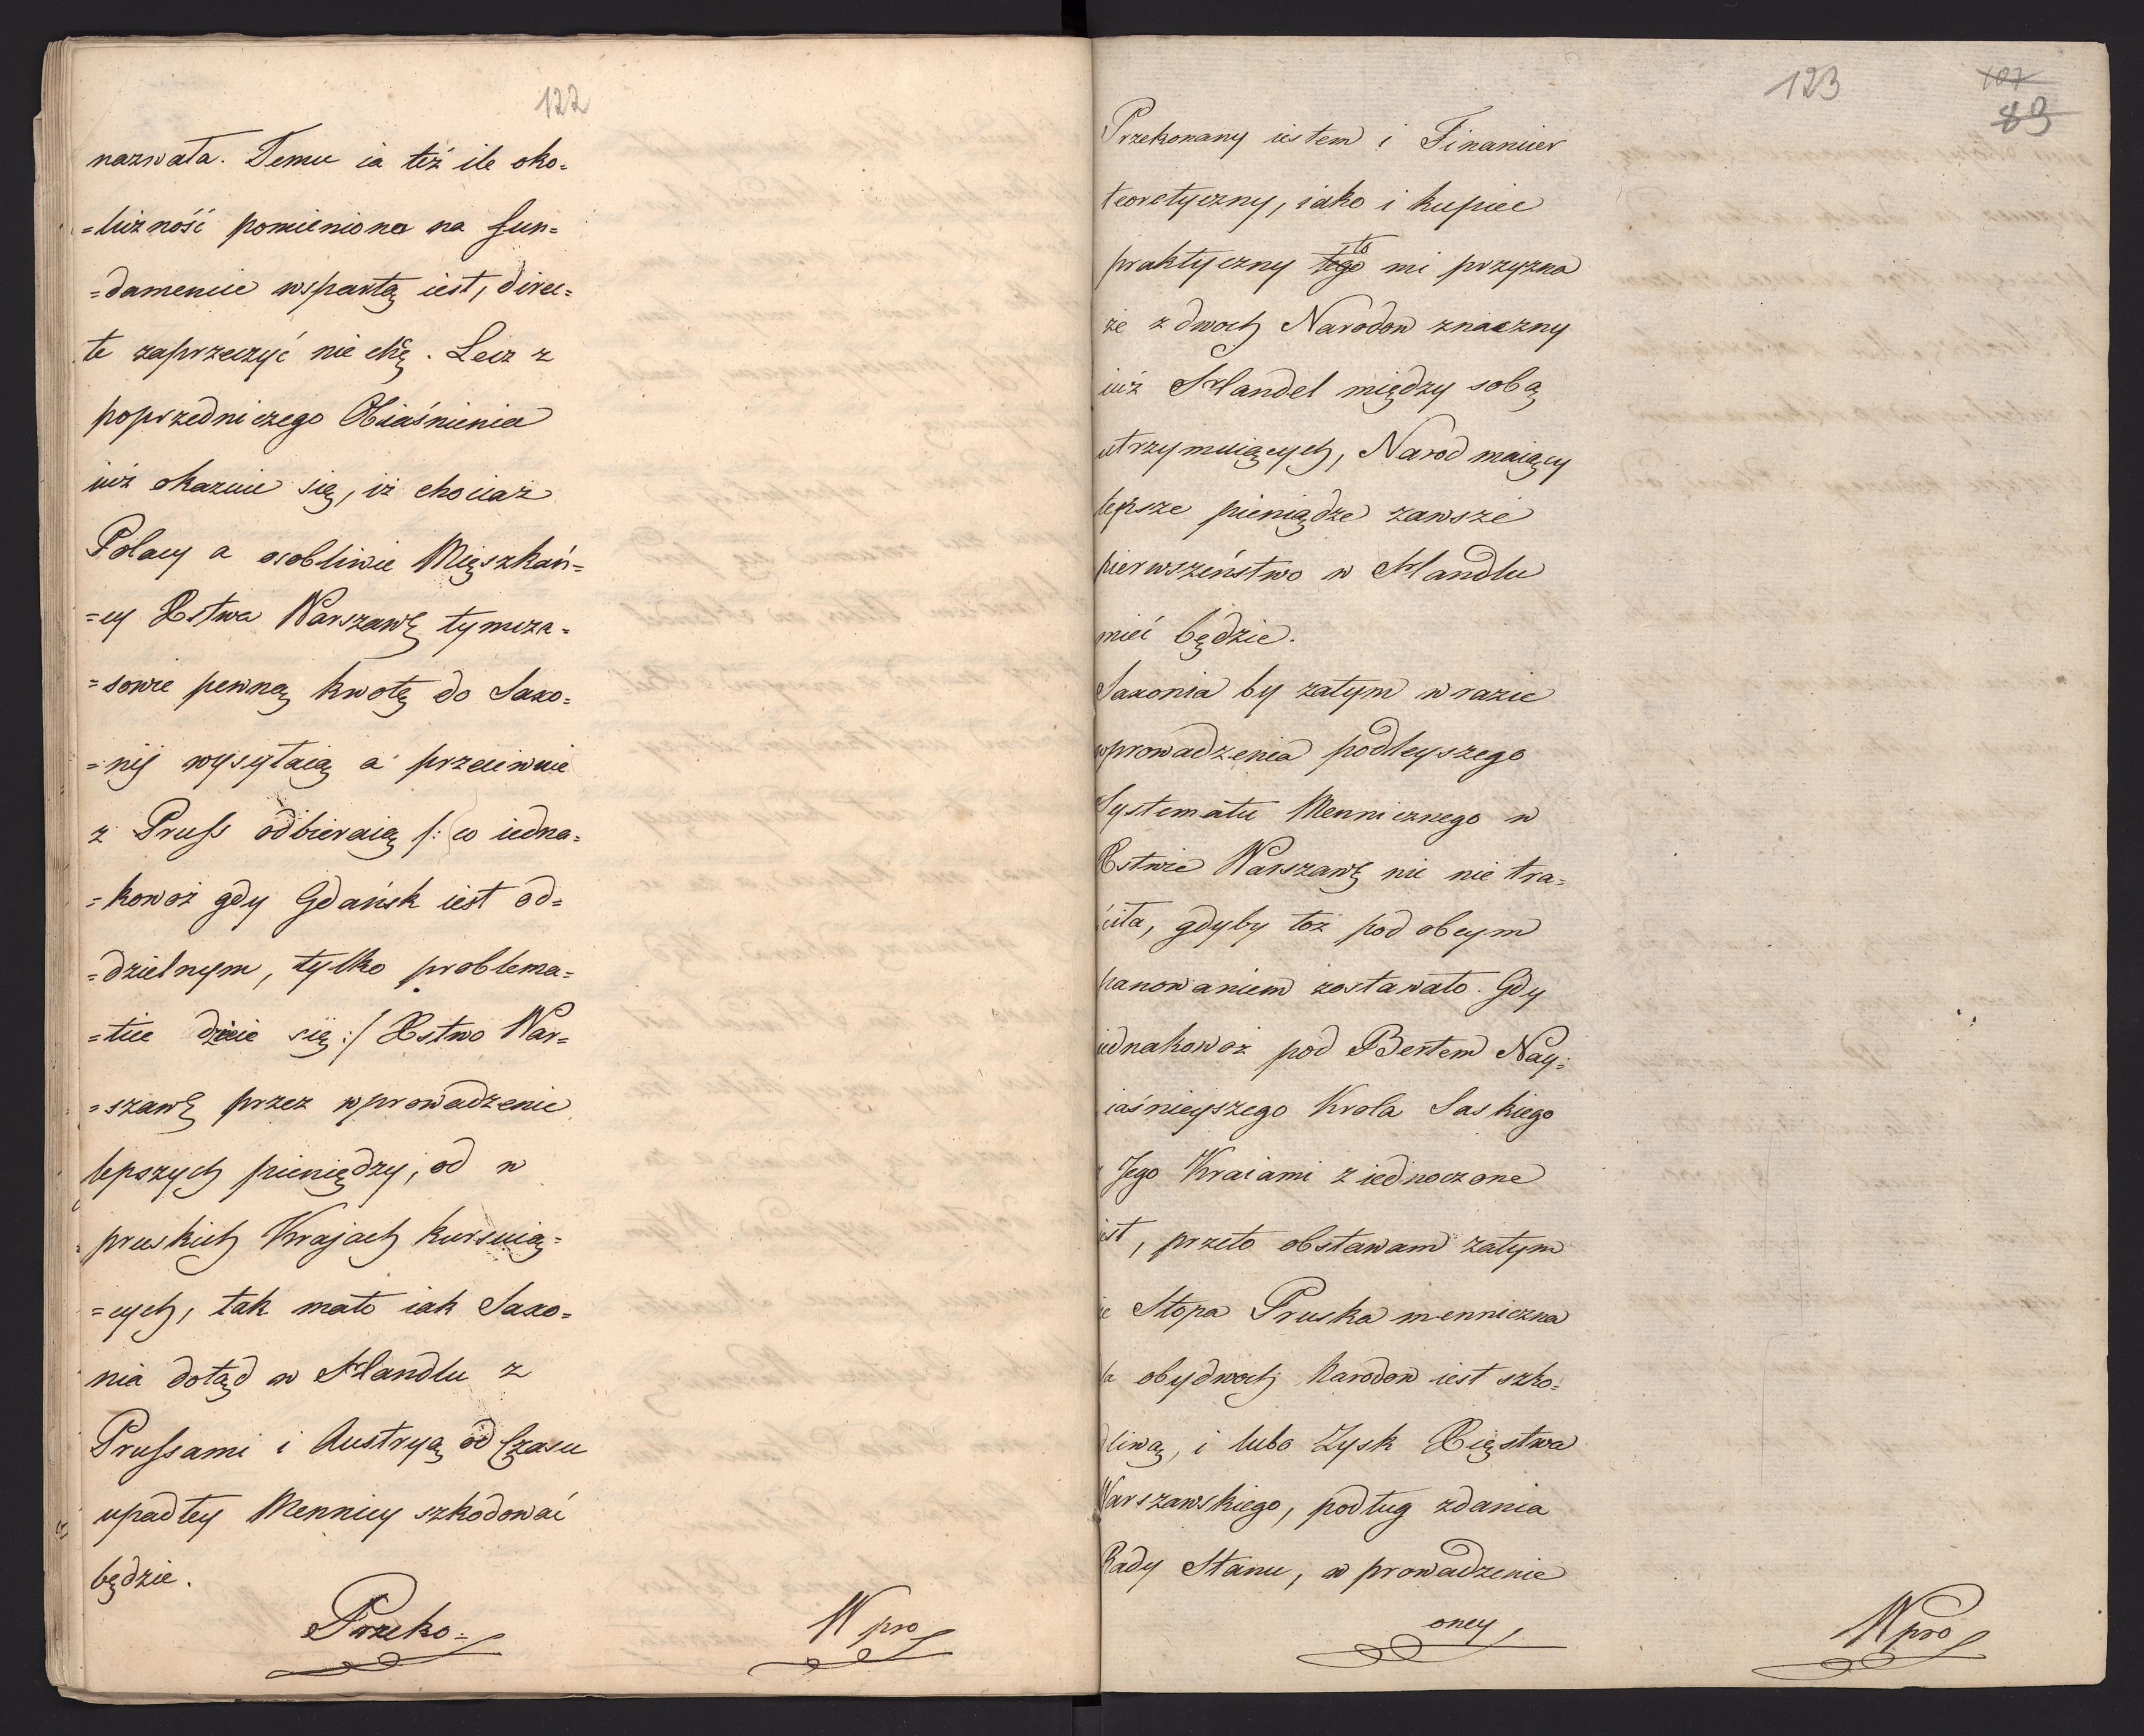 122
nazwała. Temu ia też ile oko=
=liczność pomieniona na fun=
=damencie wspartą iest, direc=
te zaprzeczyć nie chcę. Lecz z
poprzedniczego Obiaśnienia
iuż okazuie się, iż chociaż
Polacy a osobliwie Mięszkań=
=cy Xstwa Warszawẜ tymcza=
=sowie pewną kwotę do Saxo=
=nij wysyłaią a przeciwnie
z Pruss odbieraią /: co iedna=
=kowoż gdy Gdańsk iest od=
=dzielnym, tylko problema=
=tice dzieie się :/ Xstwo War=
=szawẜ przez wprowadzenie
lepszych pieniędzy, od w
pruskich Krajach kursuią=
=cych, tak mało iak Saxo=
nia dotąd w Handlu z
Prussami i Austryą od Czasu
upadłey Mennicy szkodować
będzie.
Przeko=
Wpro
123
107
89
Przekonany iestem i Financier
teoretyczny, iako i kupiec
to
praktyczny tego mi przyzna
że z dwoch Narodow znaczny
iuż Handel między sobą
utrzymuiących, Narod maiący
lepsze pieniądze zawsze
pierwszeństwo w Handlu
mieć będzie.
Saxonia by zatym w razie
wprowadzenia podleyszego
Systematu Mennicznego w
Xstwie Warszawẜ nic nie tra=
ciła, gdyby toż pod obcym
panowaniem zostawało. Gdy
iednakowoż pod Berłem Nay=
iaśnieyszego Krola Saskiego
z Jego Kraiami ziednoczone
iest, przeto obstawam zatym
że Stopa Pruska mennicza
la obydwoch Narodow iest szko=
dliwą, i lubo Zysk Xięstwa
Warszawskiego, podług zdania
Rady Stanu, w prowadzenie
oney
Wpro